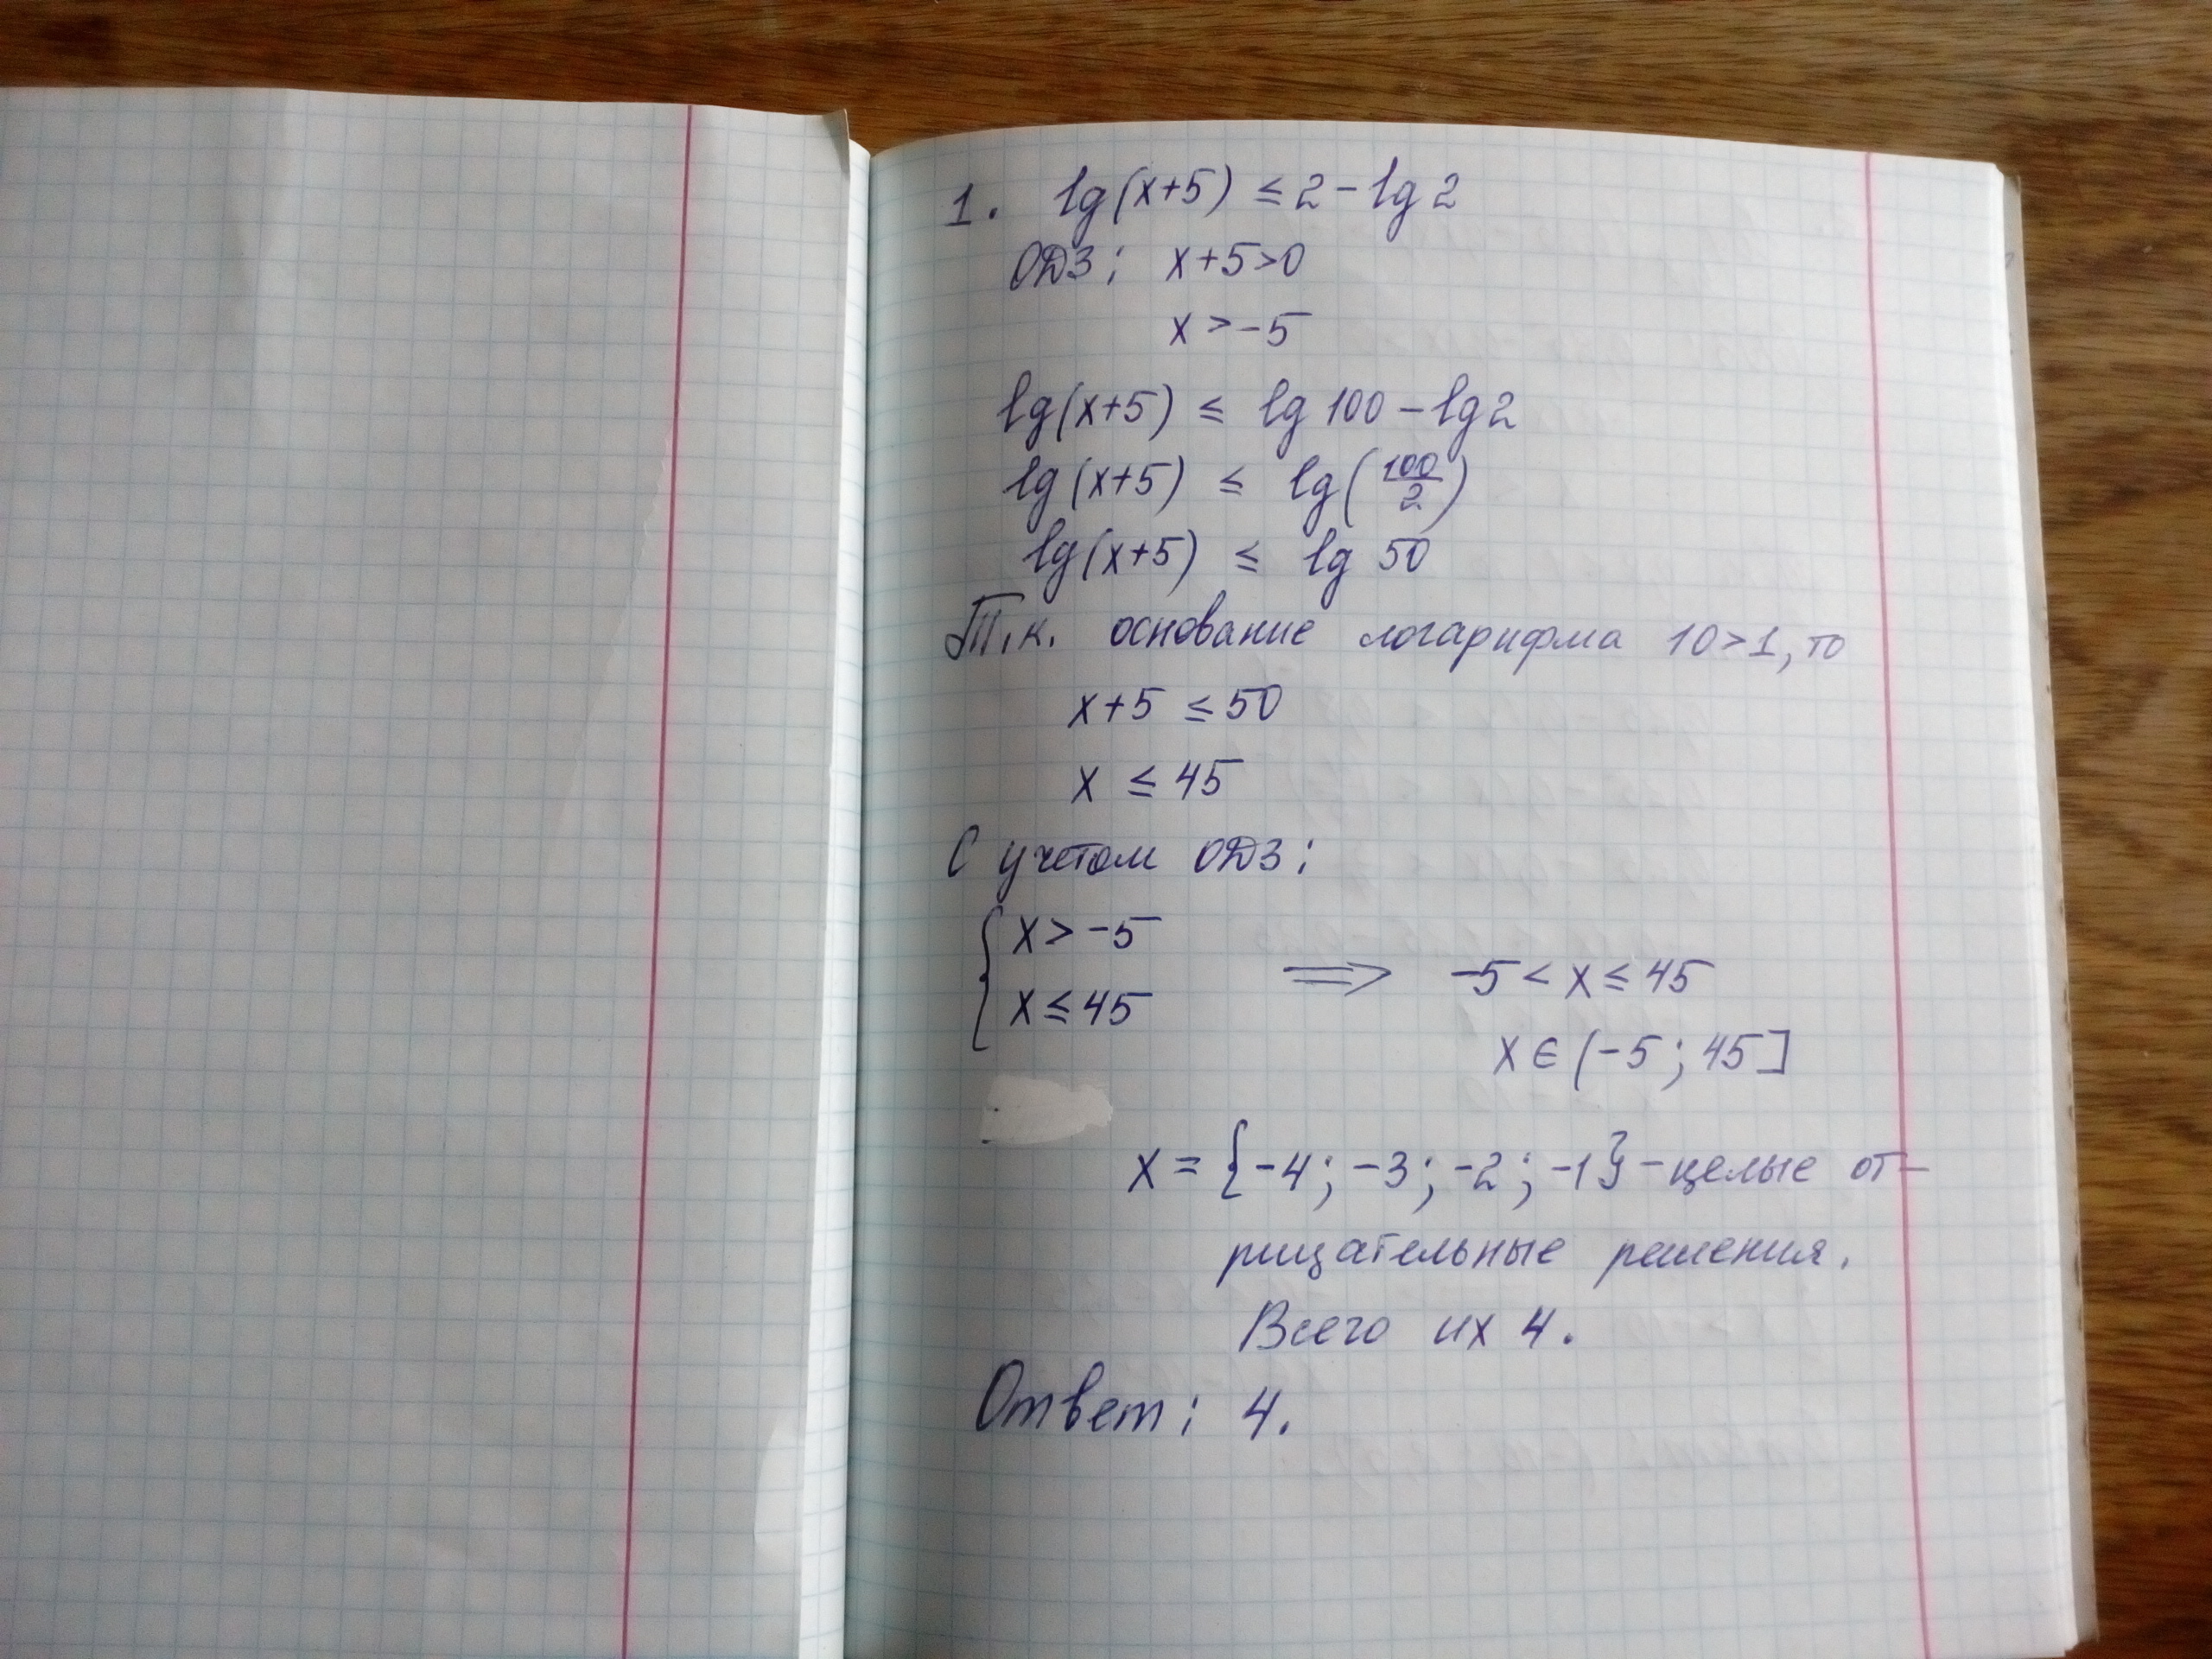 1. lg(x+5) ≤ 2 - lg 2
ОДЗ: x+5>0
x > -5
lg(x+5) ≤ lg 100 - lg 2
lg(x+5) ≤ lg(100/2)
lg(x+5) ≤ lg 50
Т.к. основание логарифма 10>1, то
x+5 ≤ 50
x ≤ 45
С учетом ОДЗ:
{ x > -5
x ≤ 45
⟹ -5 < x ≤ 45
x ∈ (-5; 45]
x = {-4; -3; -2; -1} - целые от-
рицательные решения.
Всего их 4.
Ответ: 4.